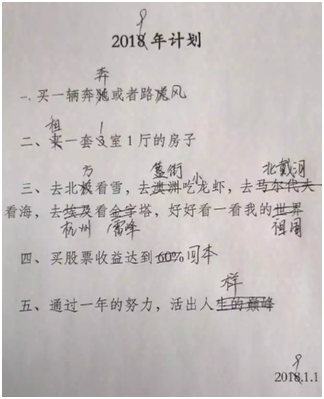 9
2018年计划
奔
一、买一辆奔驰或者路虎风
租 1
二、买一套3室1厅的房子
方 簋街 小 北戴河
三、去北极看雪,去澳洲吃龙虾,去马尔代夫
看海,去埃及看金字塔,好好看一看我的世界
杭州 雷峰 祖国
四、买股票收益达到 回本
样
五、通过一年的努力,活出人生的巅峰
9
2018.1.1